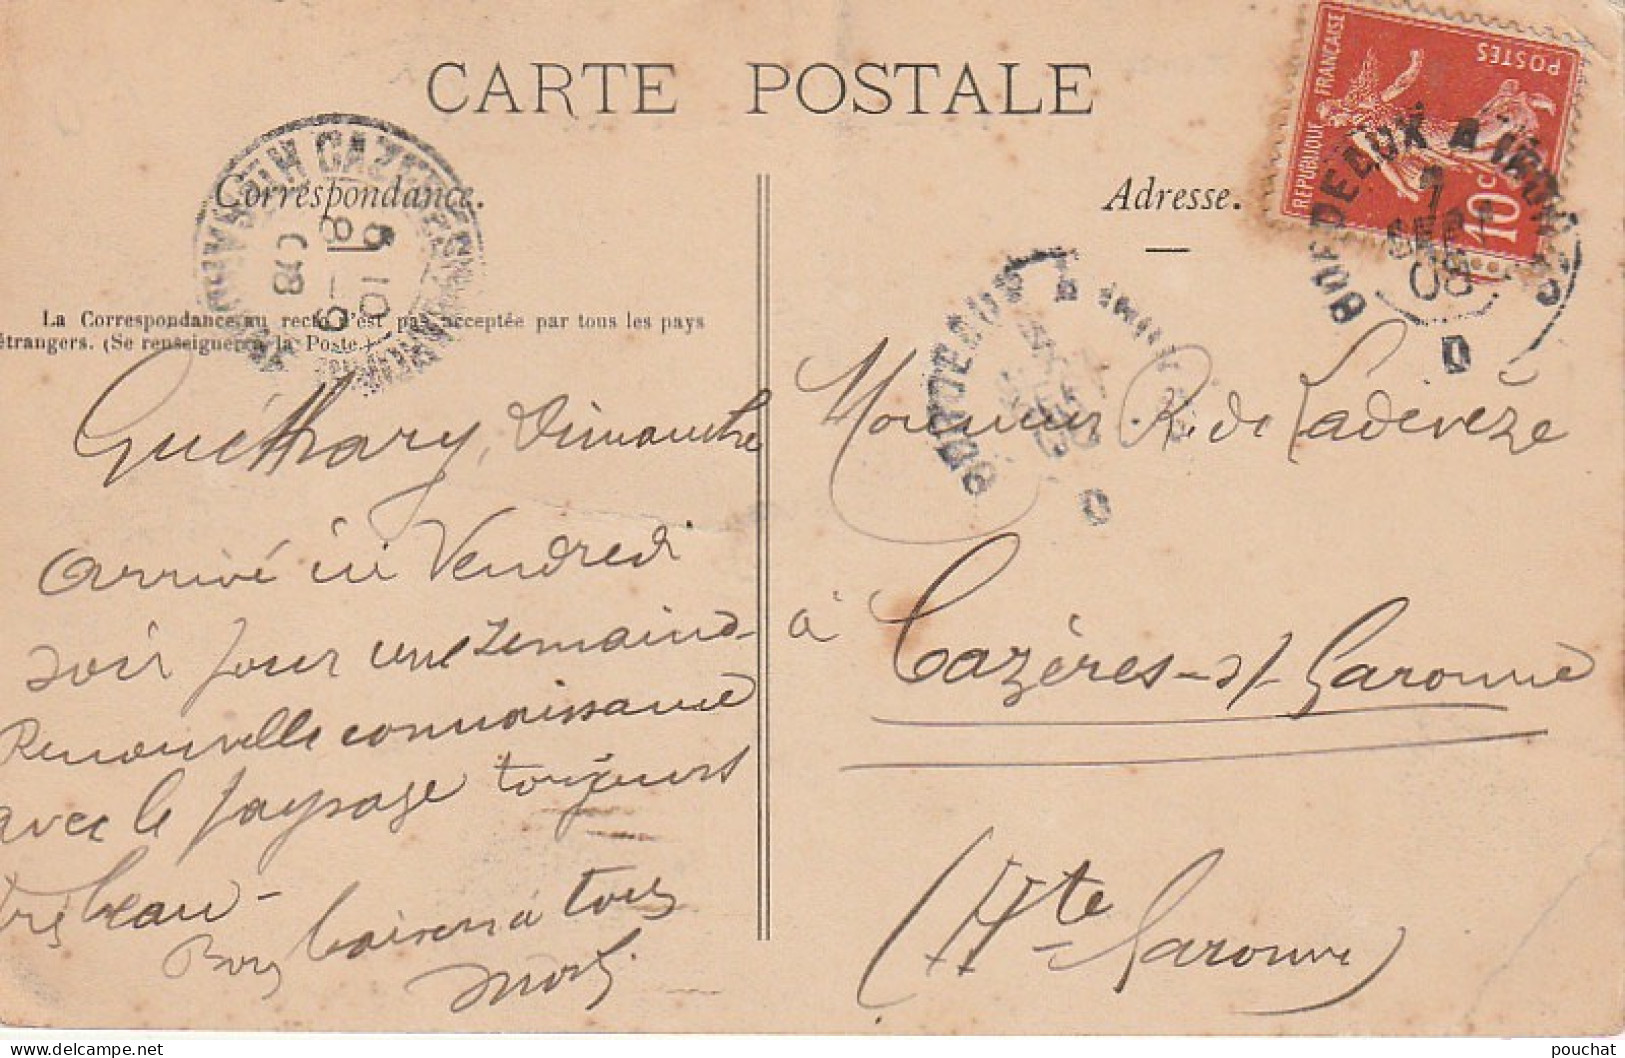 CARTE POSTALE
Correspondance.
Adresse.
RÉPUBLIQUE FRANÇAISE
POSTES
10 c
BORDEAUX A IRUN
7
SEPT
08
CAZÈRES
La Correspondance au recto n'est pas acceptée par tous les pays
étrangers. (Se renseigner à la Poste.)
Guéthary, Dimanche
arrivé ici Vendredi
soir pour une semaine
Renouvelle connaissance
avec le paysage toujours
très beau -
Bons baisers à tous
Monsieur R. de Ladevèze
à Cazères-s/-Garonne
(Hte Garonne)
pouchat